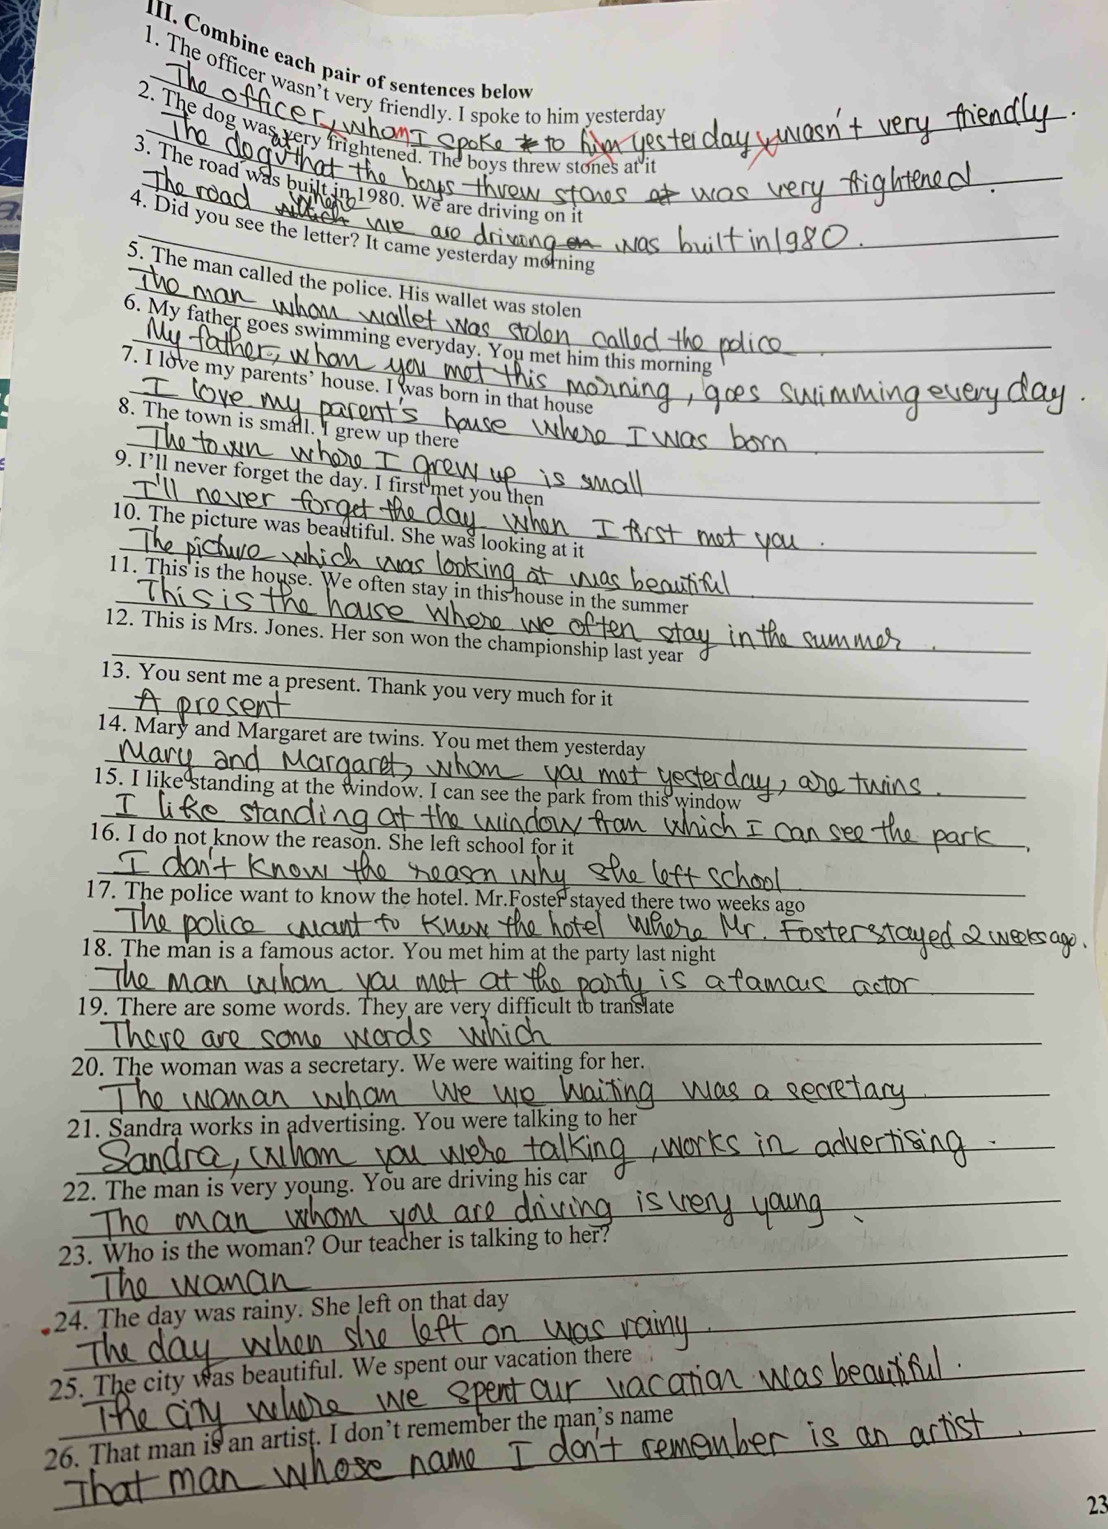 III. Combine each pair of sentences below
1. The officer wasn't very friendly. I spoke to him yesterday
The officer, whom I spoke to him yesterday, wasn't very friendly.
2. The dog was very frightened. The boys threw stones at it
The dog that the boys threw stones at was very frightened.
3. The road was built in 1980. We are driving on it
The road where we are driving on was built in 1980.
4. Did you see the letter? It came yesterday morning
5. The man called the police. His wallet was stolen
The man whom wallet was stolen called the police.
6. My father goes swimming everyday. You met him this morning
My father, whom you met this morning, goes swimming every day.
7. I love my parents' house. I was born in that house
I love my parent's house where I was born.
8. The town is small. I grew up there
The town where I grew up is small
9. I'll never forget the day. I first met you then
I'll never forget the day when I first met you.
10. The picture was beautiful. She was looking at it
The picture which was looking at was beautiful.
11. This is the house. We often stay in this house in the summer
This is the house where we often stay in the summer.
12. This is Mrs. Jones. Her son won the championship last year
13. You sent me a present. Thank you very much for it
A present
14. Mary and Margaret are twins. You met them yesterday
Mary and Margaret, whom you met yesterday, are twins.
15. I like standing at the window. I can see the park from this window
I like standing at the window from which I can see the park.
16. I do not know the reason. She left school for it
I don't know the reason why she left school.
17. The police want to know the hotel. Mr.Foster stayed there two weeks ago
The police want to know the hotel where Mr. Foster stayed 2 weeks ago.
18. The man is a famous actor. You met him at the party last night
The man whom you met at the party is a famous actor.
19. There are some words. They are very difficult to translate
There are some words which
20. The woman was a secretary. We were waiting for her.
The woman whom we we waiting was a secretary.
21. Sandra works in advertising. You were talking to her
Sandra, whom you were talking, works in advertising.
22. The man is very young. You are driving his car
The man whom you are driving is very young.
23. Who is the woman? Our teacher is talking to her?
The woman
24. The day was rainy. She left on that day
The day when she left on was rainy.
25. The city was beautiful. We spent our vacation there
The city where we spent our vacation was beautiful.
26. That man is an artist. I don't remember the man's name
That man whose name I don't remember is an artist.
23